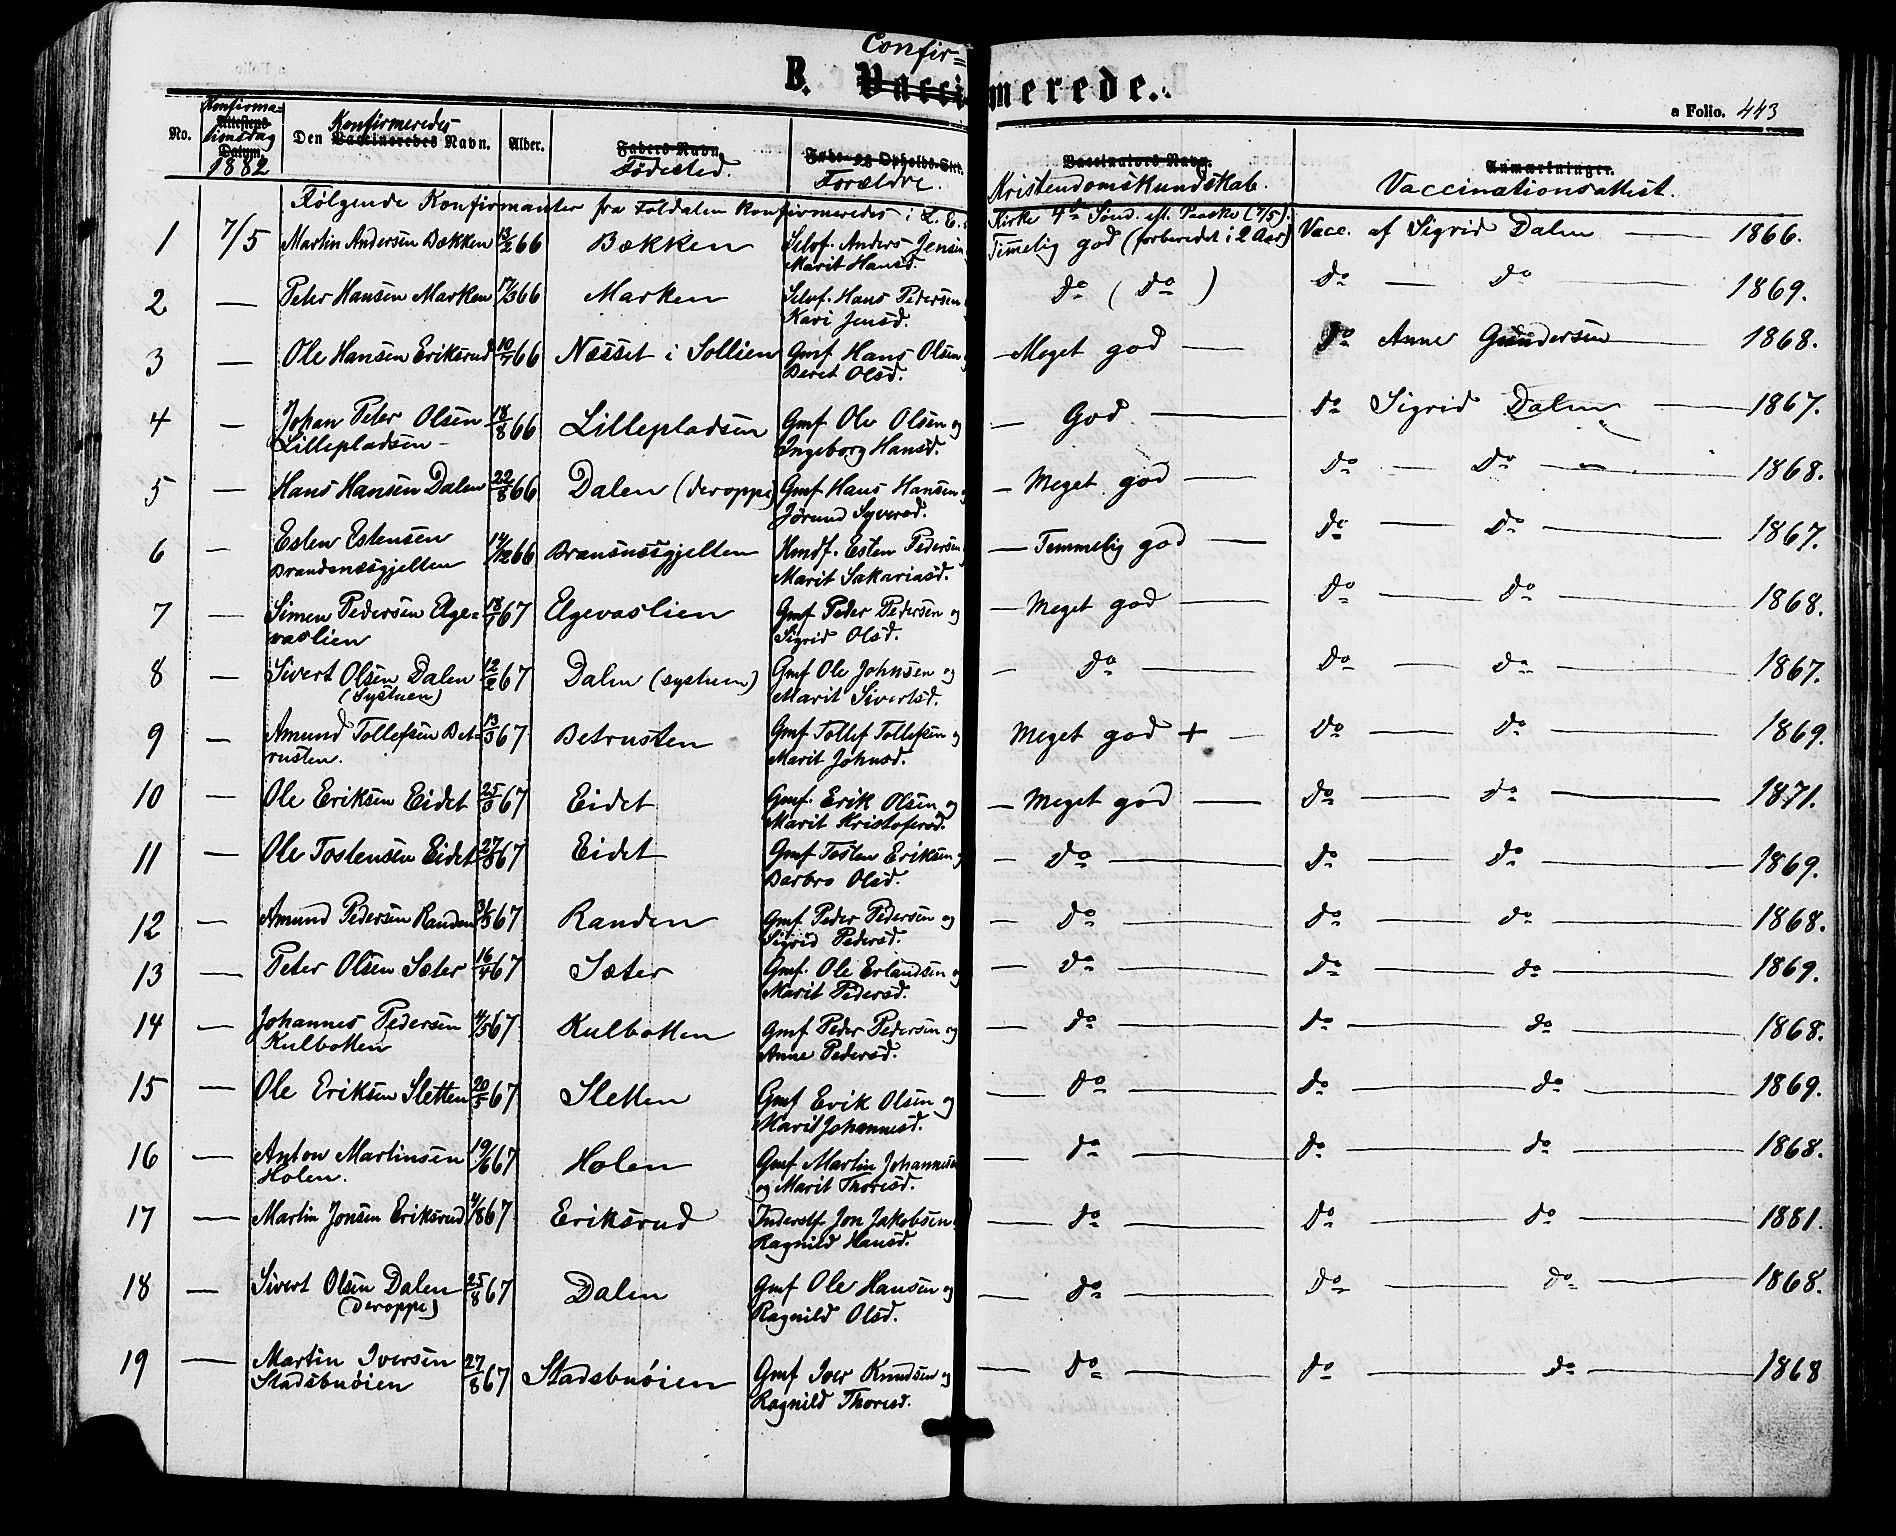 Confir=
B. Vacci merede.
a Folio. 443
No. Konfirma= Attestens tionsdag Datum 1882 Den Konfirmeredes Vaccineredes Navn. Alder. Faders Navn Fødested. Føde- og Opholds-Sted. Forældre. Vaccinators Navn. Kristendomskundskab. Anmærkninger. Vaccinationsattest.
Følgende Konfirmanter fra Foldalen konfirmeredes i L. E. Kirke 4de Sønd. eft. Paaske (7/5).
1 7/5 Martin Andersen Bækken 13/2 66 Bækken Selvf. Anders Jensen Temmelig god (forberedet i 2 Aar) Vacc. af Sigrid Dalen — 1866.
Marit Hansd.
2 — Peter Hansen Marken 17/3 66 Marken Selvf. Hans Pedersen do (do) do — do — 1869.
Kari Jensd.
3 — Ole Hansen Eriksrud 10/7 66 Næsset i Sollien Gmf Hans Olsen — Meget god — do Anne Gundersen — 1868.
Beret Olsd.
4 — Johan Peter Olsen 18/8 66 Lillepladsen Gmf Ole Olsen og — God — do Sigrid Dalen — 1867.
Lillepladsen Ingeborg Hansd.
5 — Hans Hansen Dalen 22/8 66 Dalen (deroppe) Gmf Hans Hansen — Meget god — do — do — 1868.
Jørund Syversd.
6 — Esten Estensen 14/12 66 Brænsnæsgjelten Hmdf. Esten Pedersen — Temmelig god — do — do — 1867.
Brandsnæsgjelten Marit Sakariasd.
7 — Simen Pedersen Elge= 18/1 67 Elgevaslien Gmf Peder Pedersen og — Meget god — do — do — 1868.
vaslien Sigrid Olsd.
8 — Sivert Olsen Dalen 12/2 67 Dalen (systuen) Gmf Ole Johnsen og — do — do — do — 1867.
(Systuen) Marit Sivertsd.
9 — Amund Tollefsen Bet- 13/3 67 Betrusten Gmf Tollef Tollefsen og Meget god + — do — do — 1869.
rusten. Marit Johnsd.
10 — Ole Eriksen Eidet 25/3 67 Eidet Gmf. Erik Olsen og — Meget god — do — do — 1871.
Marit Kristofersd.
11 — Ole Tostensen Eidet 27/3 67 Eidet Gmf Tosten Eriksen — do — do — do — 1869.
Barbro Olsd.
12 — Amund Pedersen Randen 31/3 67 Randen Gmf Peder Pedersen og — do — do — do — 1868.
Sigrid Pedersd.
13 — Peter Olsen Sæter 16/4 67 Sæter Gmf. Ole Erlandsen og — do — do — do — 1869.
Marit Pedersd.
14 — Johannes Pedersen 4/5 67 Kulbotten Gmf Peder Pedersen og — do — do — do — 1868.
Kulbotten Anne Pedersd.
15 — Ole Eriksen Sletten 20/5 67 Sletten Gmf Erik Olsen og — do — do — do — 1869.
Marit Johannesd.
16 — Anton Martinsen 19/6 67 Holen Gmf Martin Johannesen — do — do — do — 1868.
Holen. og Marit Thoresd.
17 — Martin Jonsen Eriksrud 4/8 67 Eriksrud Inderstf Jon Jakobsen — do — do — do — 1881.
Ragnild Hansd.
18 — Sivert Olsen Dalen 25/8 67 Dalen Gmf Ole Hansen og — do — do — do — 1868.
(deroppe) Ragnild Olsd.
19 — Martin Iversen 27/8 67 Stadsbuøien Gmf Iver Knudsen og — do — do — do — 1868
Stadsbuøien Ragnild Thoresd.